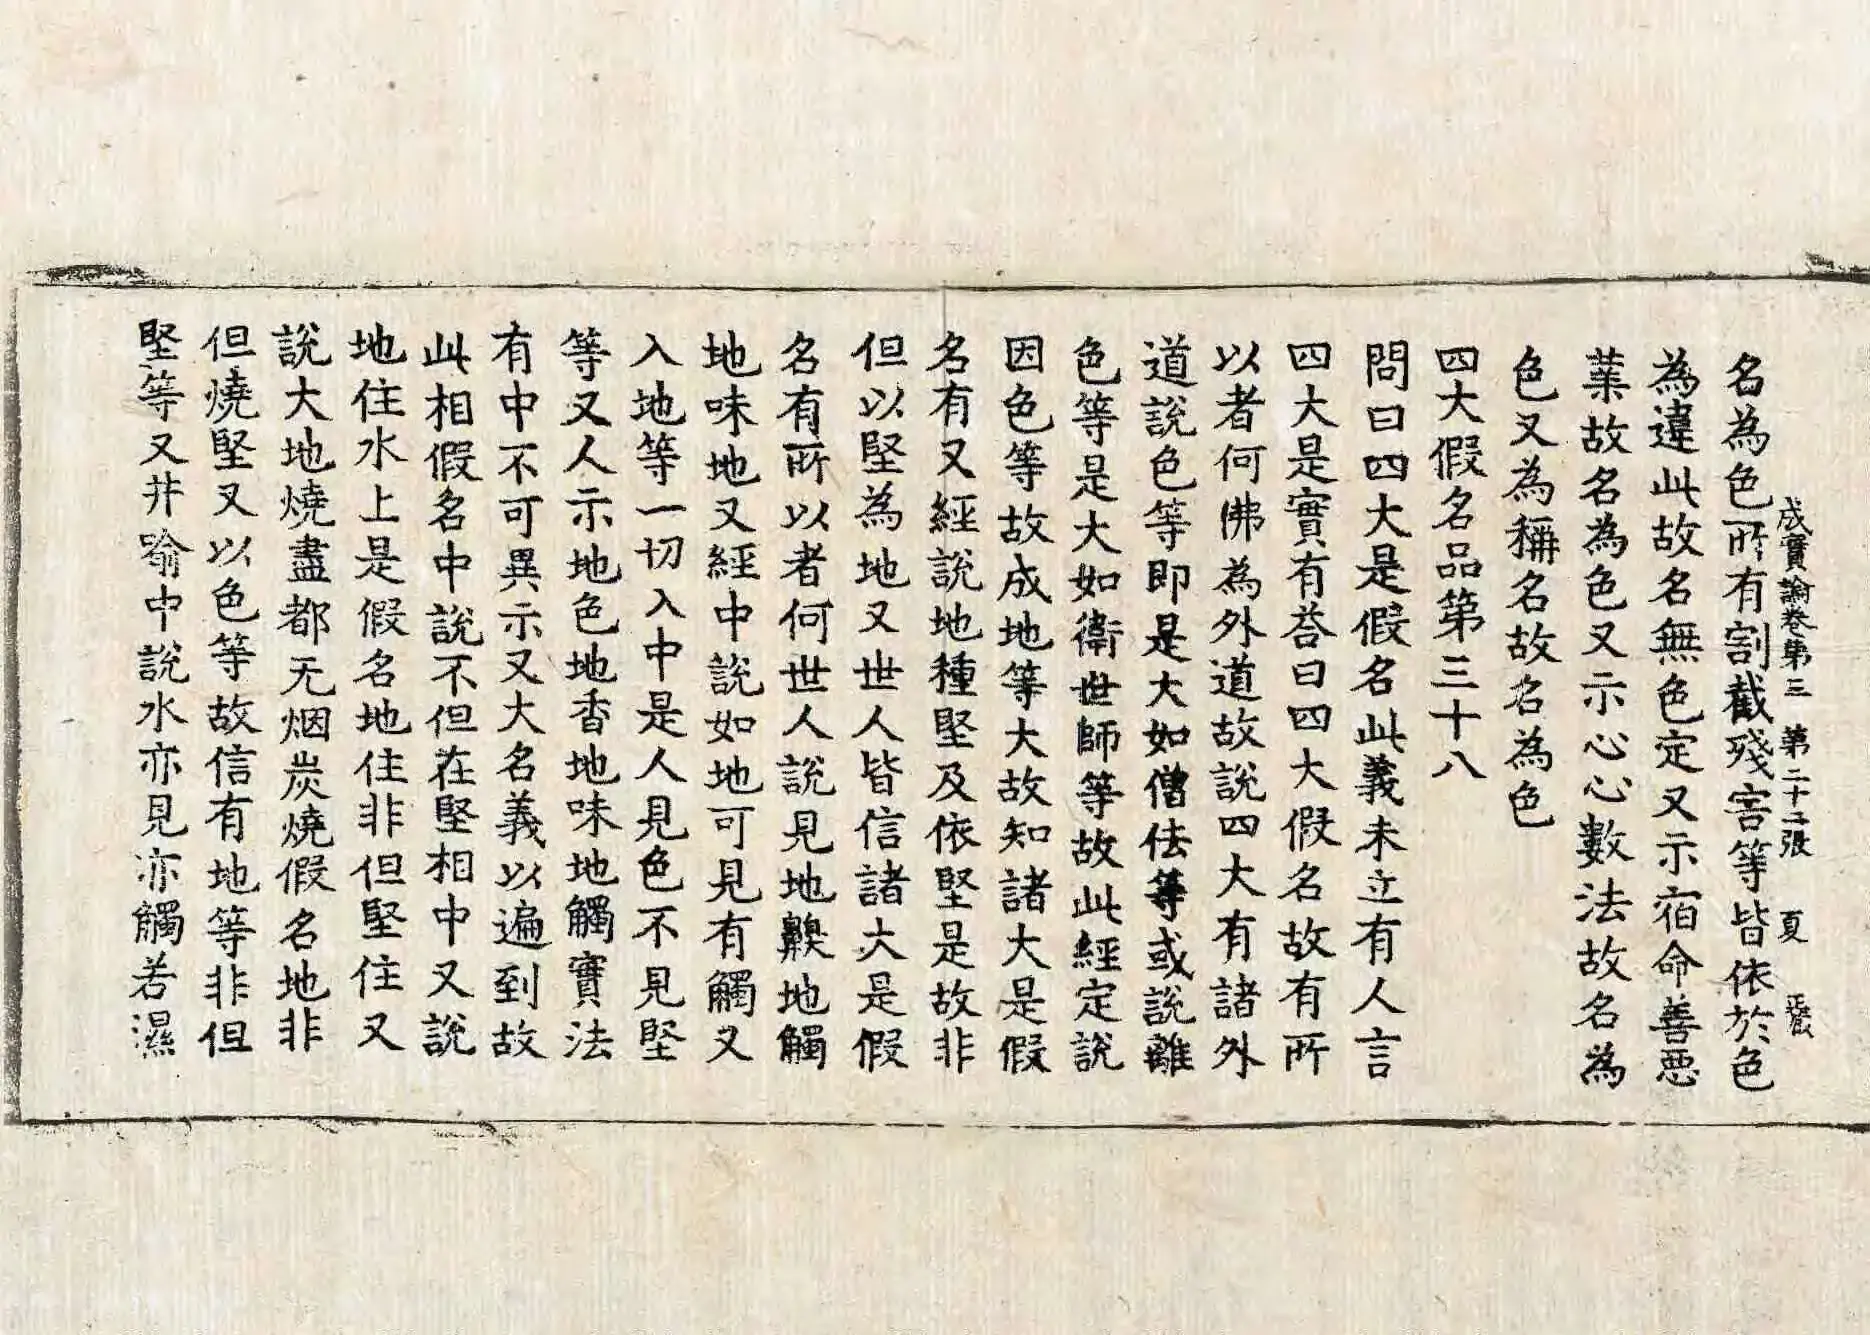 成實論卷第三 第二十二張 夏
名為色所有割截殘害等皆依於色
為違此故名無色定又示宿命善惡
業故名為色又示心心數法故名為
色又為稱名故名為色
四大假名品第三十八
問曰四大是假名此義未立有人言
四大是實有荅曰四大假名故有所
以者何佛為外道故說四大有諸外
道說色等即是大如僧佉等或說離
色等是大如衛世師等故此經定說
因色等故成地等大故知諸大是假
名有又經說地種堅及依堅是故非
但以堅為地又世人皆信諸大是假
名有所以者何世人說見地齅地觸
地味地又經中說如地可見有觸又
入地等一切入中是人見色不見堅
等又人示地色地香地味地觸實法
有中不可異示又大名義以遍到故
此相假名中說不但在堅相中又說
地住水上是假名地住非但堅住又
說大地燒盡都无烟炭燒假名地非
但燒堅又以色等故信有地等非但
堅等又井喻中說水亦見亦觸若濕